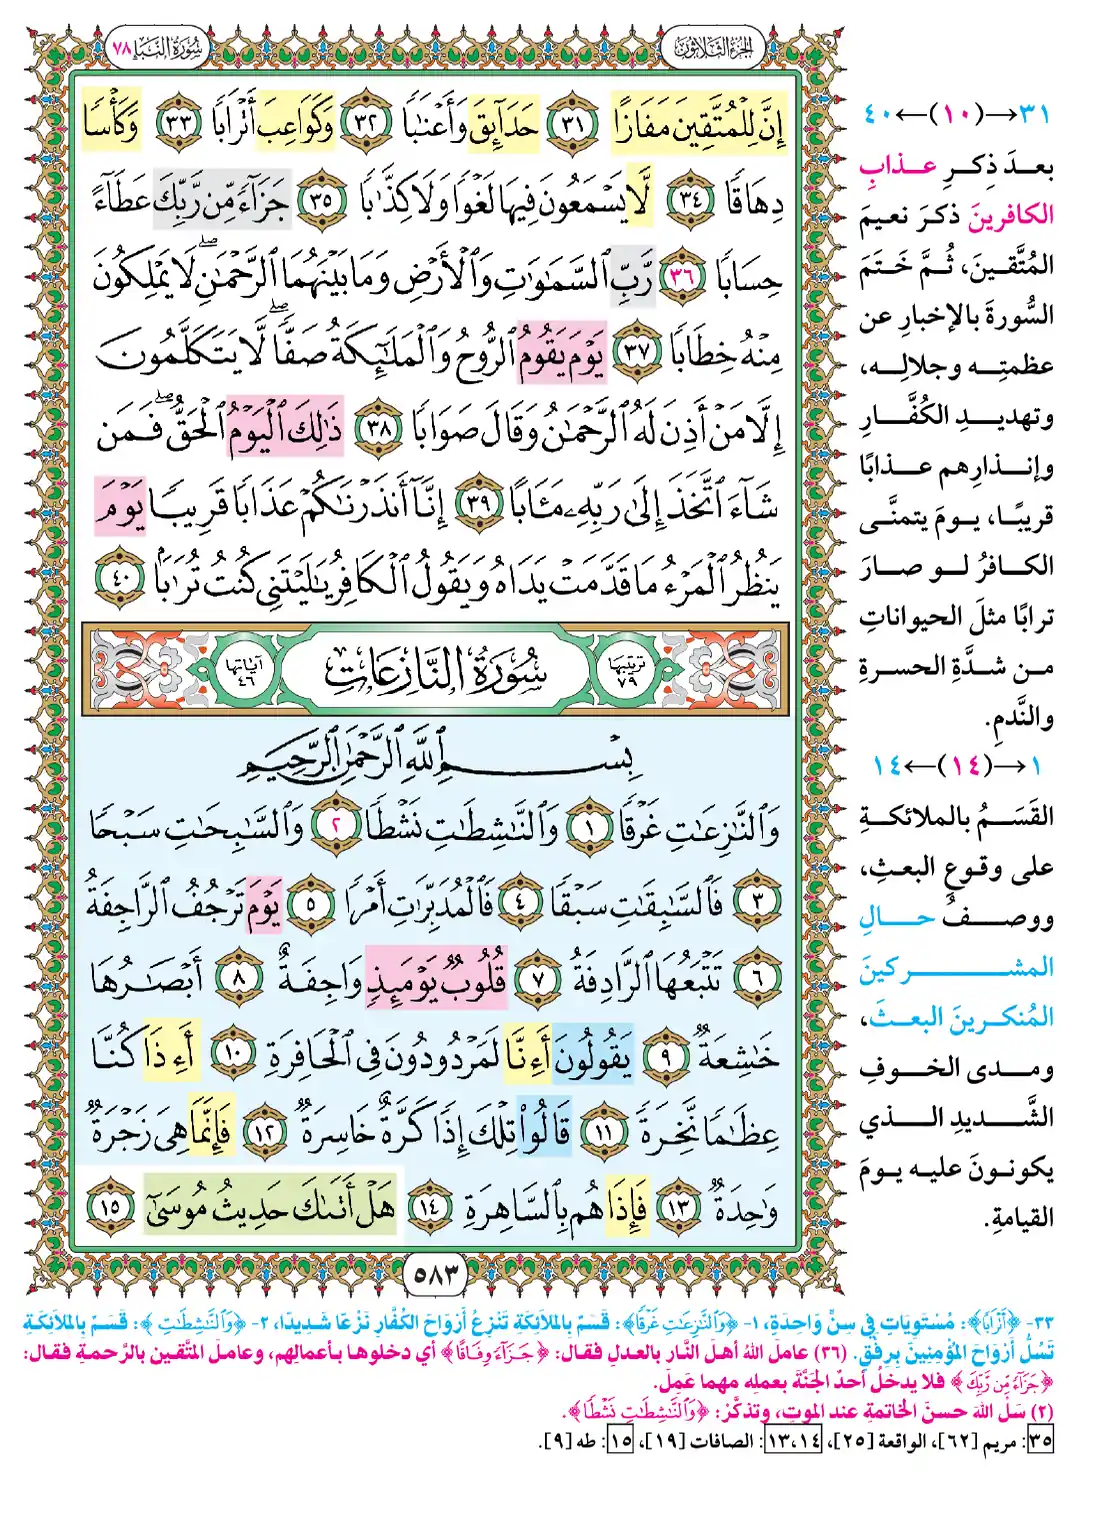 الجزء الثلاثون
سورة النبإ ٧٨
إِنَّ لِلْمُتَّقِينَ مَفَازًا ٣١ حَدَآئِقَ وَأَعْنَٰبًا ٣٢ وَكَوَاعِبَ أَتْرَابًا ٣٣ وَكَأْسًا
دِهَاقًا ٣٤ لَّا يَسْمَعُونَ فِيهَا لَغْوًا وَلَا كِذَّٰبًا ٣٥ جَزَآءً مِّن رَّبِّكَ عَطَآءً
حِسَابًا ٣٦ رَّبِّ السَّمَٰوَٰتِ وَالْأَرْضِ وَمَا بَيْنَهُمَا الرَّحْمَٰنِ ۖ لَا يَمْلِكُونَ
مِنْهُ خِطَابًا ٣٧ يَوْمَ يَقُومُ الرُّوحُ وَالْمَلَٰٓئِكَةُ صَفًّا ۖ لَّا يَتَكَلَّمُونَ
إِلَّا مَنْ أَذِنَ لَهُ الرَّحْمَٰنُ وَقَالَ صَوَابًا ٣٨ ذَٰلِكَ الْيَوْمُ الْحَقُّ ۖ فَمَن
شَآءَ اتَّخَذَ إِلَىٰ رَبِّهِۦ مَـَٔابًا ٣٩ إِنَّآ أَنذَرْنَٰكُمْ عَذَابًا قَرِيبًا يَوْمَ
يَنظُرُ الْمَرْءُ مَا قَدَّمَتْ يَدَاهُ وَيَقُولُ الْكَافِرُ يَٰلَيْتَنِى كُنتُ تُرَٰبًۢا ٤٠
ترتيبها ٧٩
سُورَةُ النَّازِعَاتِ
آياتها ٤٦
بِسْمِ اللَّهِ الرَّحْمَٰنِ الرَّحِيمِ
وَالنَّٰزِعَٰتِ غَرْقًا ١ وَالنَّٰشِطَٰتِ نَشْطًا ٢ وَالسَّٰبِحَٰتِ سَبْحًا
٣ فَالسَّٰبِقَٰتِ سَبْقًا ٤ فَالْمُدَبِّرَٰتِ أَمْرًا ٥ يَوْمَ تَرْجُفُ الرَّاجِفَةُ
٦ تَتْبَعُهَا الرَّادِفَةُ ٧ قُلُوبٌ يَوْمَئِذٍ وَاجِفَةٌ ٨ أَبْصَٰرُهَا
خَٰشِعَةٌ ٩ يَقُولُونَ أَءِنَّا لَمَرْدُودُونَ فِى الْحَافِرَةِ ١٠ أَءِذَا كُنَّا
عِظَٰمًا نَّخِرَةً ١١ قَالُوا۟ تِلْكَ إِذًا كَرَّةٌ خَاسِرَةٌ ١٢ فَإِنَّمَا هِىَ زَجْرَةٌ
وَٰحِدَةٌ ١٣ فَإِذَا هُم بِالسَّاهِرَةِ ١٤ هَلْ أَتَىٰكَ حَدِيثُ مُوسَىٰٓ ١٥
٥٨٣
٣١→(١٠)←٤٠
بعدَ ذِكرِ عذابِ
الكافرينَ ذكرَ نعيمَ
المُتَّقينَ، ثُمَّ خَتَمَ
السُّورةَ بالإخبارِ عن
عظمتِه وجلالِه،
وتهديدِ الكُفَّارِ
وإنذارِهم عذابًا
قريبًا، يومَ يتمنَّى
الكافرُ لو صارَ
ترابًا مثلَ الحيواناتِ
من شدَّةِ الحسرةِ
والنَّدمِ.
١→(١٤)←١٤
القَسَمُ بالملائكةِ
على وقوعِ البعثِ،
ووصفُ حالِ
المشركينَ
المُنكرينَ البعثَ،
ومدى الخوفِ
الشَّديدِ الذي
يكونونَ عليه يومَ
القيامةِ.
٣٣- ﴿أَتْرَابًا﴾: مُسْتَوِيَاتٍ فِي سِنٍّ وَاحِدَةٍ، ١- ﴿وَالنَّٰزِعَٰتِ غَرْقًا﴾: قَسَمٌ بِالمَلَائِكَةِ تَنْزِعُ أَرْوَاحَ الكُفَّارِ نَزْعًا شَدِيدًا، ٢- ﴿وَالنَّٰشِطَٰتِ﴾: قَسَمٌ بِالمَلَائِكَةِ
تَسُلُّ أَرْوَاحَ المُؤْمِنِينَ بِرِفْقٍ. (٣٦) عاملَ اللهُ أهلَ النَّارِ بالعدلِ فقال: ﴿جَزَآءً وِفَاقًا﴾ أي دخلوها بأعمالِهم، وعاملَ المتَّقين بالرَّحمةِ فقال:
﴿جَزَآءً مِّن رَّبِّكَ﴾ فلا يدخلُ أحدٌ الجَنَّةَ بعملِه مهما عَمِلَ.
(٢) سَلِ اللهَ حسنَ الخاتمةِ عند الموتِ، وتذكَّرْ: ﴿وَالنَّٰشِطَٰتِ نَشْطًا﴾.
٣٥: مريم [٦٢]، الواقعة [٢٥]، ١٣،١٤: الصافات [١٩]، ١٥: طه [٩].